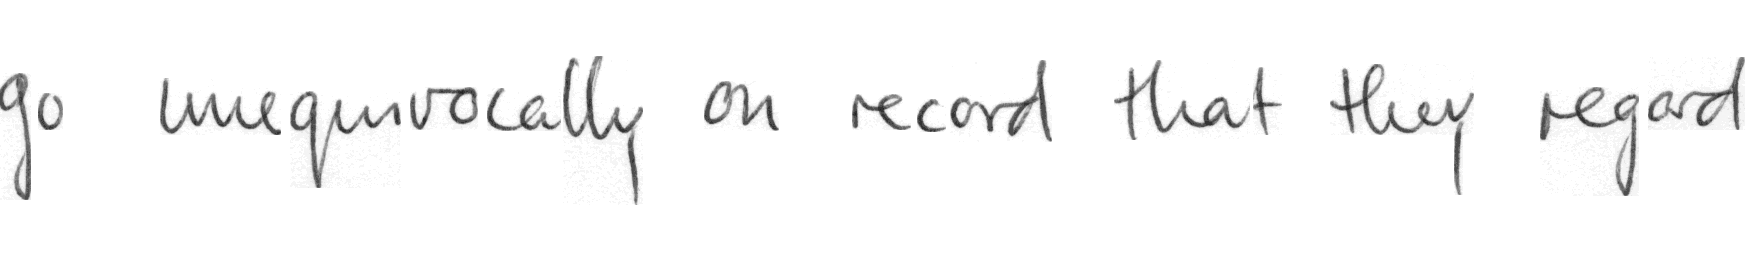 go unequivocally on record that they regard